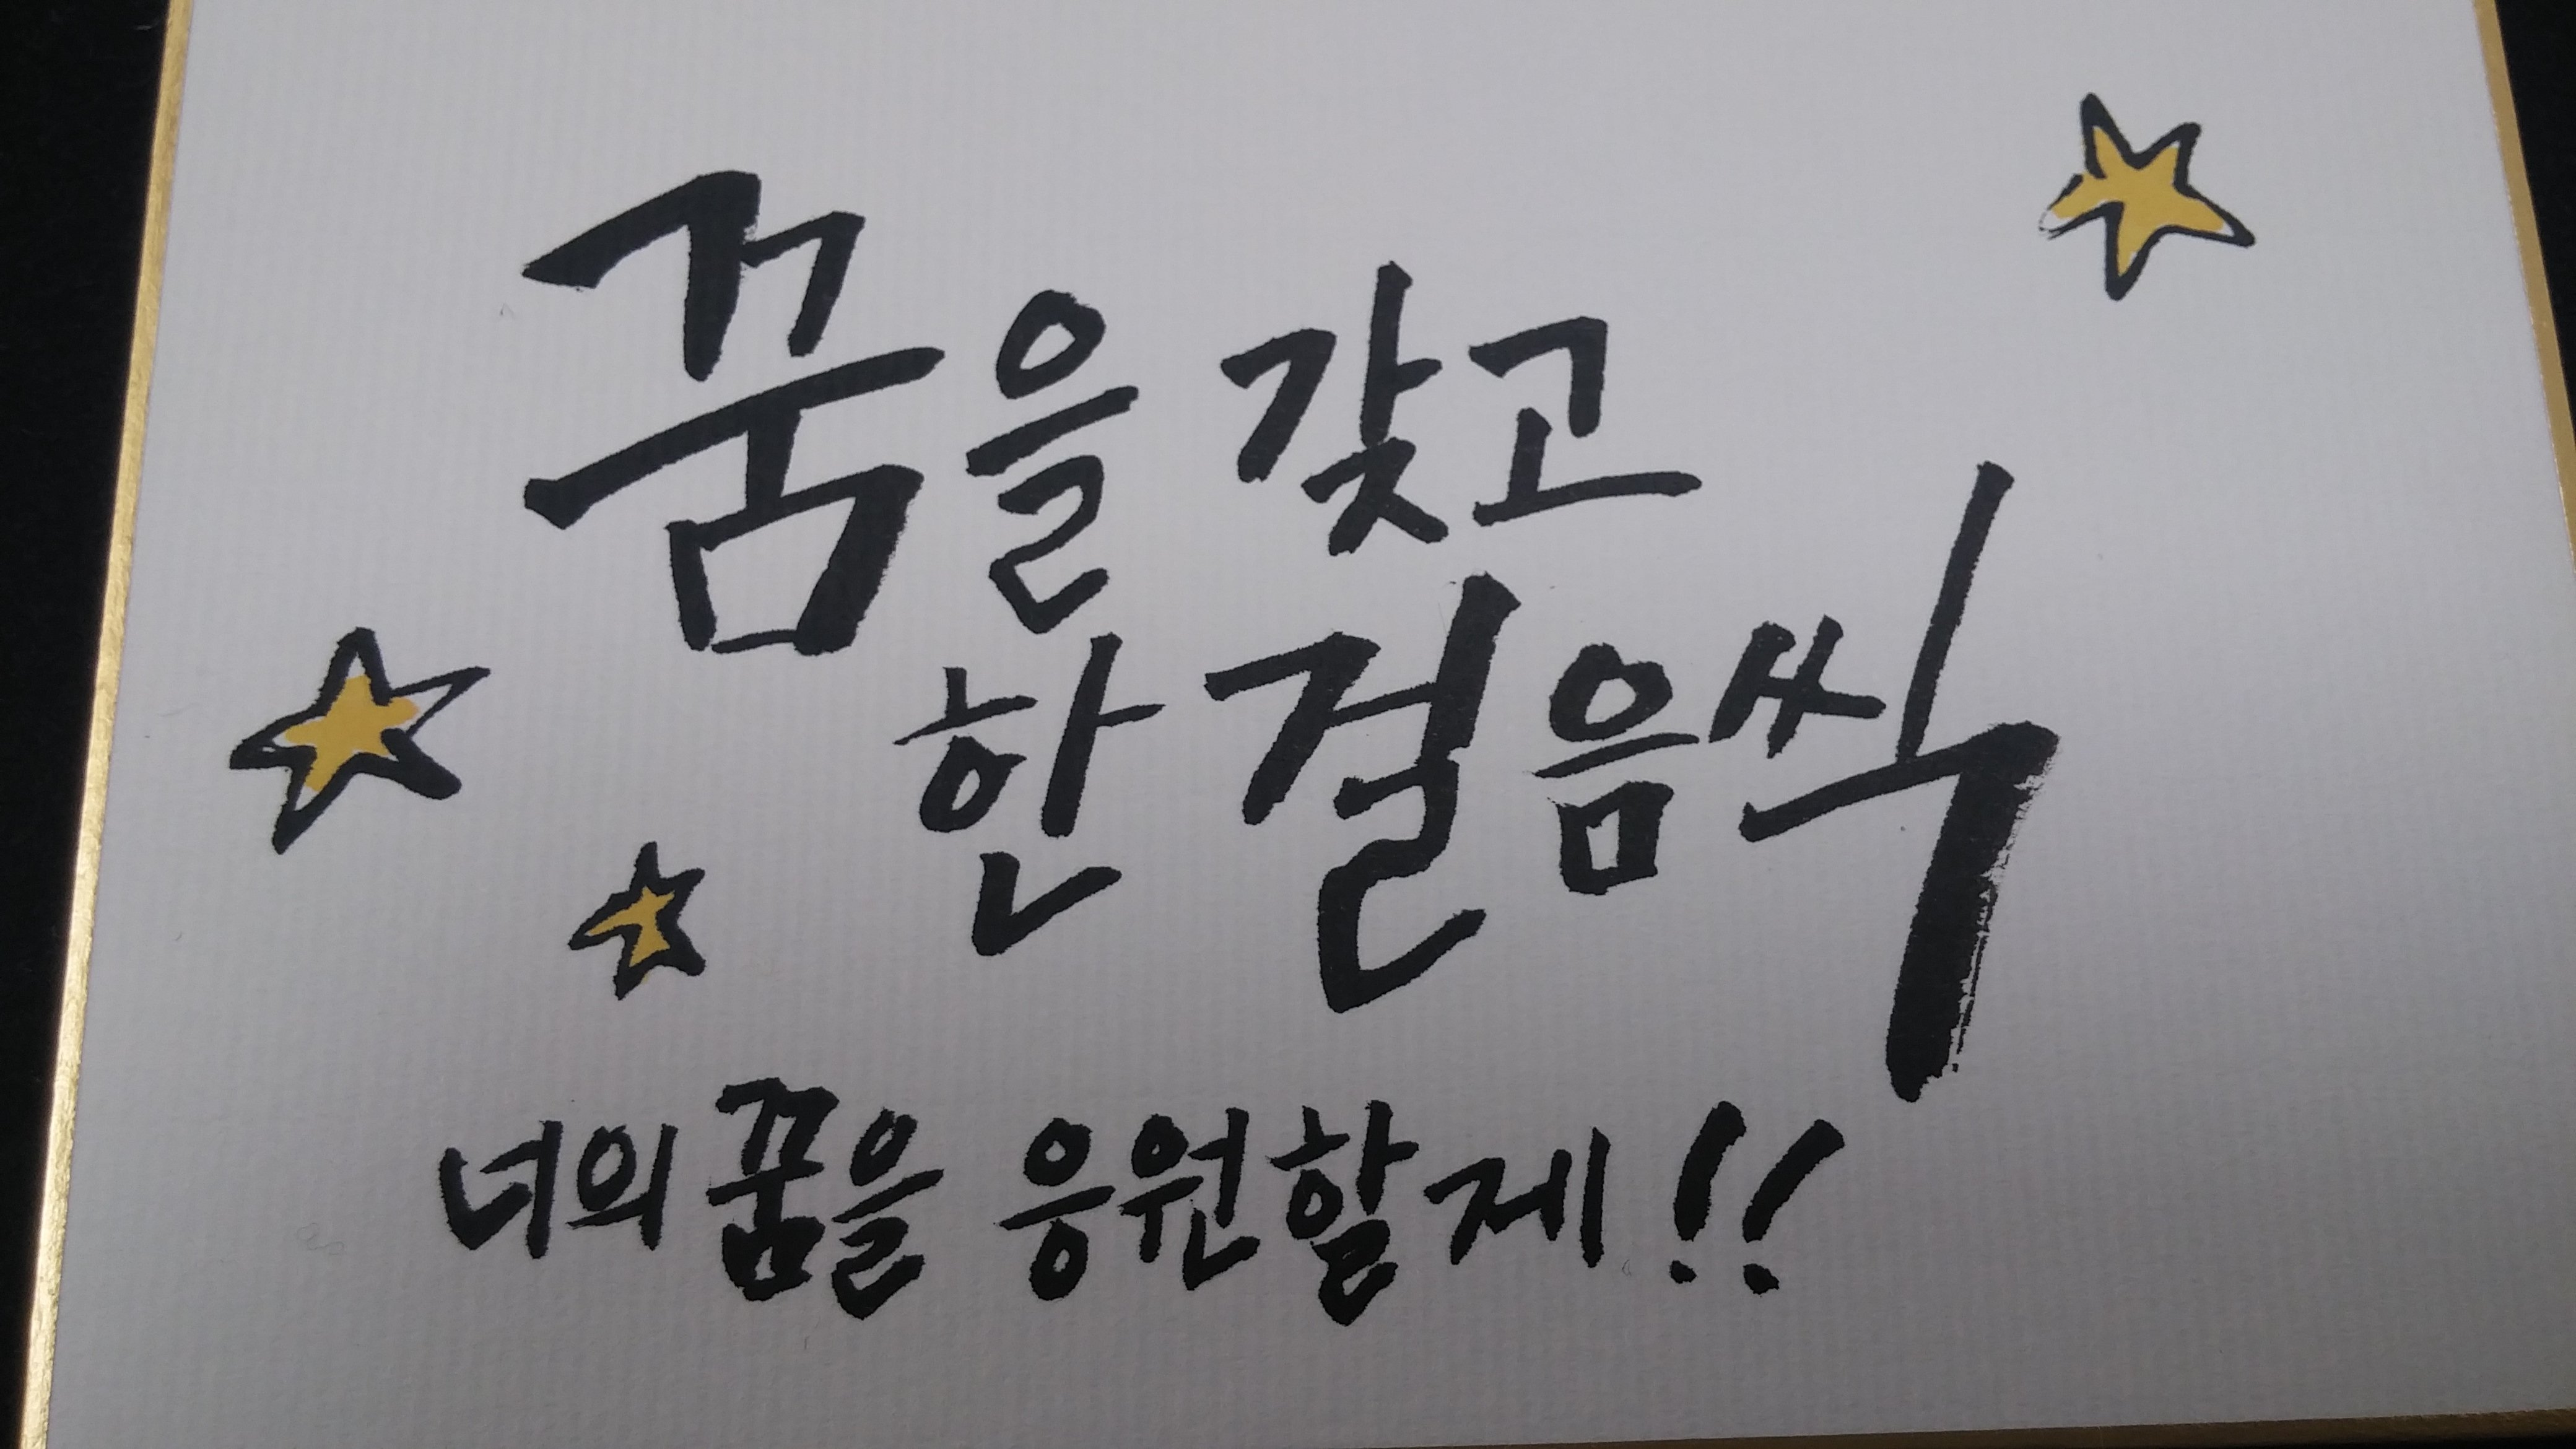 꿈을 갖고
한 걸음씩
너의 꿈을 응원할제!!